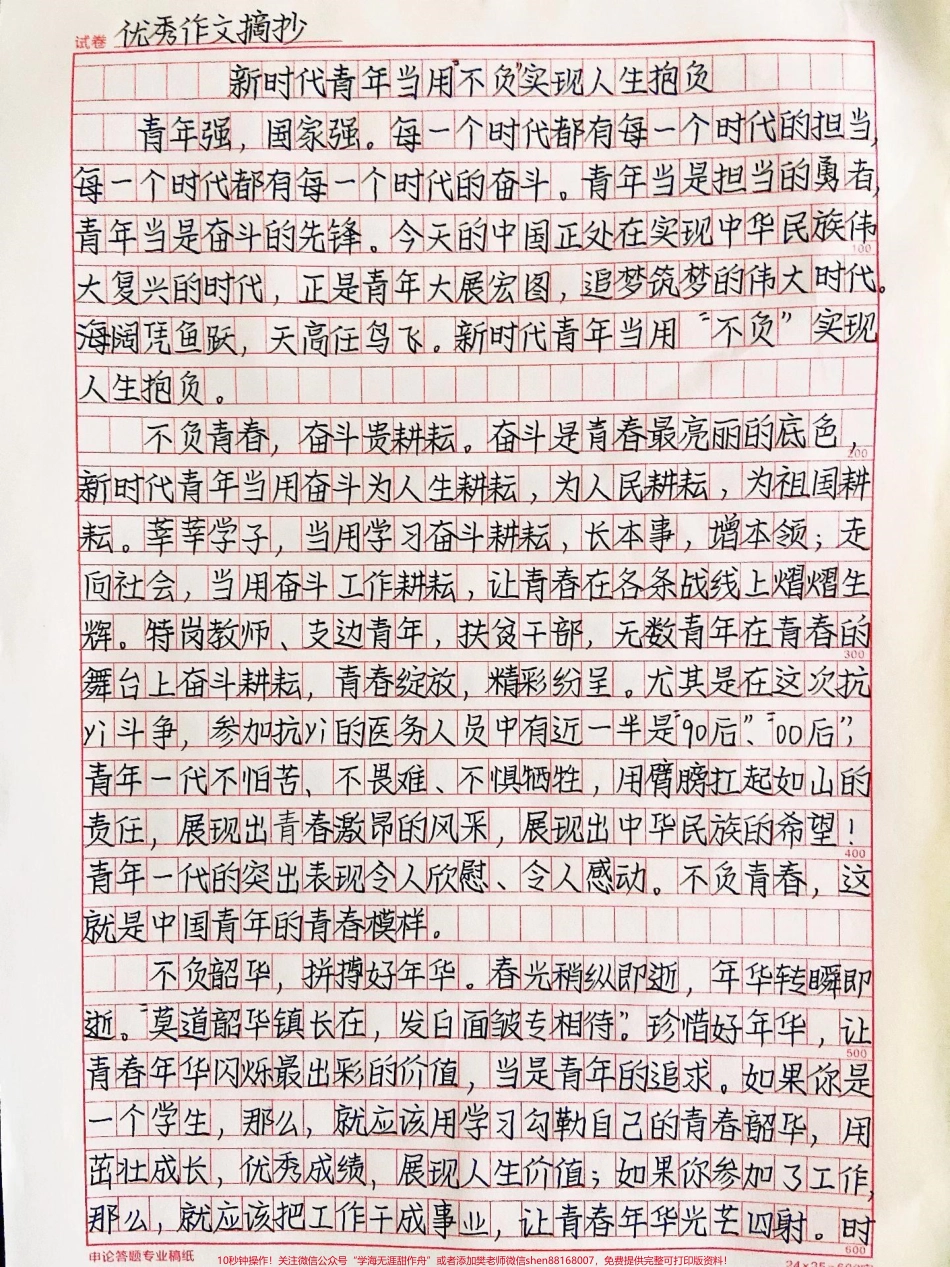 试卷 优秀作文摘抄
新时代青年当用“不负”实现人生抱负
青年强，国家强。每一个时代都有每一个时代的担当，
每一个时代都有每一个时代的奋斗。青年当是担当的勇者，
青年当是奋斗的先锋。今天的中国正处在实现中华民族伟
100
大复兴的时代，正是青年大展宏图，追梦筑梦的伟大时代。
海阔凭鱼跃，天高任鸟飞。新时代青年当用“不负”实现
人生抱负。
不负青春，奋斗贵耕耘。奋斗是青春最亮丽的底色，
200
新时代青年当用奋斗为人生耕耘，为人民耕耘，为祖国耕
耘。莘莘学子，当用学习奋斗耕耘，长本事，增本领；走
向社会，当用奋斗工作耕耘，让青春在各条战线上熠熠生
辉。特岗教师、支边青年，扶贫干部，无数青年在青春的
300
舞台上奋斗耕耘，青春绽放，精彩纷呈。尤其是在这次抗
yi斗争，参加抗yi的医务人员中有近一半是“90后”、“00后”，
青年一代不怕苦、不畏难、不惧牺牲，用臂膀扛起如山的
责任，展现出青春激昂的风采，展现出中华民族的希望！
400
青年一代的突出表现令人欣慰、令人感动。不负青春，这
就是中国青年的青春模样。
不负韶华，拼搏好年华。春光稍纵即逝，年华转瞬即
逝。“莫道韶华镇长在，发白面皱专相待”。珍惜好年华，让
500
青春年华闪烁最出彩的价值，当是青年的追求。如果你是
一个学生，那么，就应该用学习勾勒自己的青春韶华，用
茁壮成长，优秀成绩，展现人生价值；如果你参加了工作，
那么，就应该把工作干成事业，让青春年华光芒四射。时
600
申论答题专业稿纸
24×25=600字
10秒钟操作！关注微信公众号“学海无涯甜作舟”或者添加樊老师微信shen88168007，免费提供完整可打印版资料！